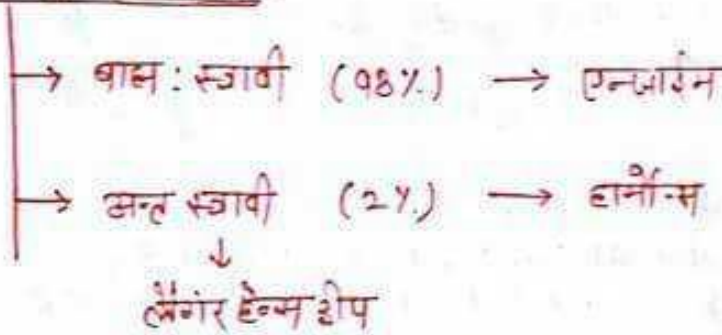 → बाह्य : स्त्रावी (98%) → एनजाईम
→ अन्त स्त्रावी (2%) → हार्मोन्स
↓
लैंगर हेन्स द्वीप